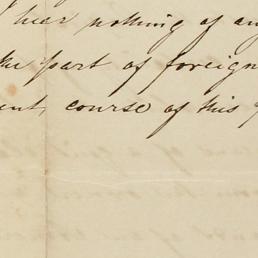 hear nothing of any
the part of foreign
ent, course of this